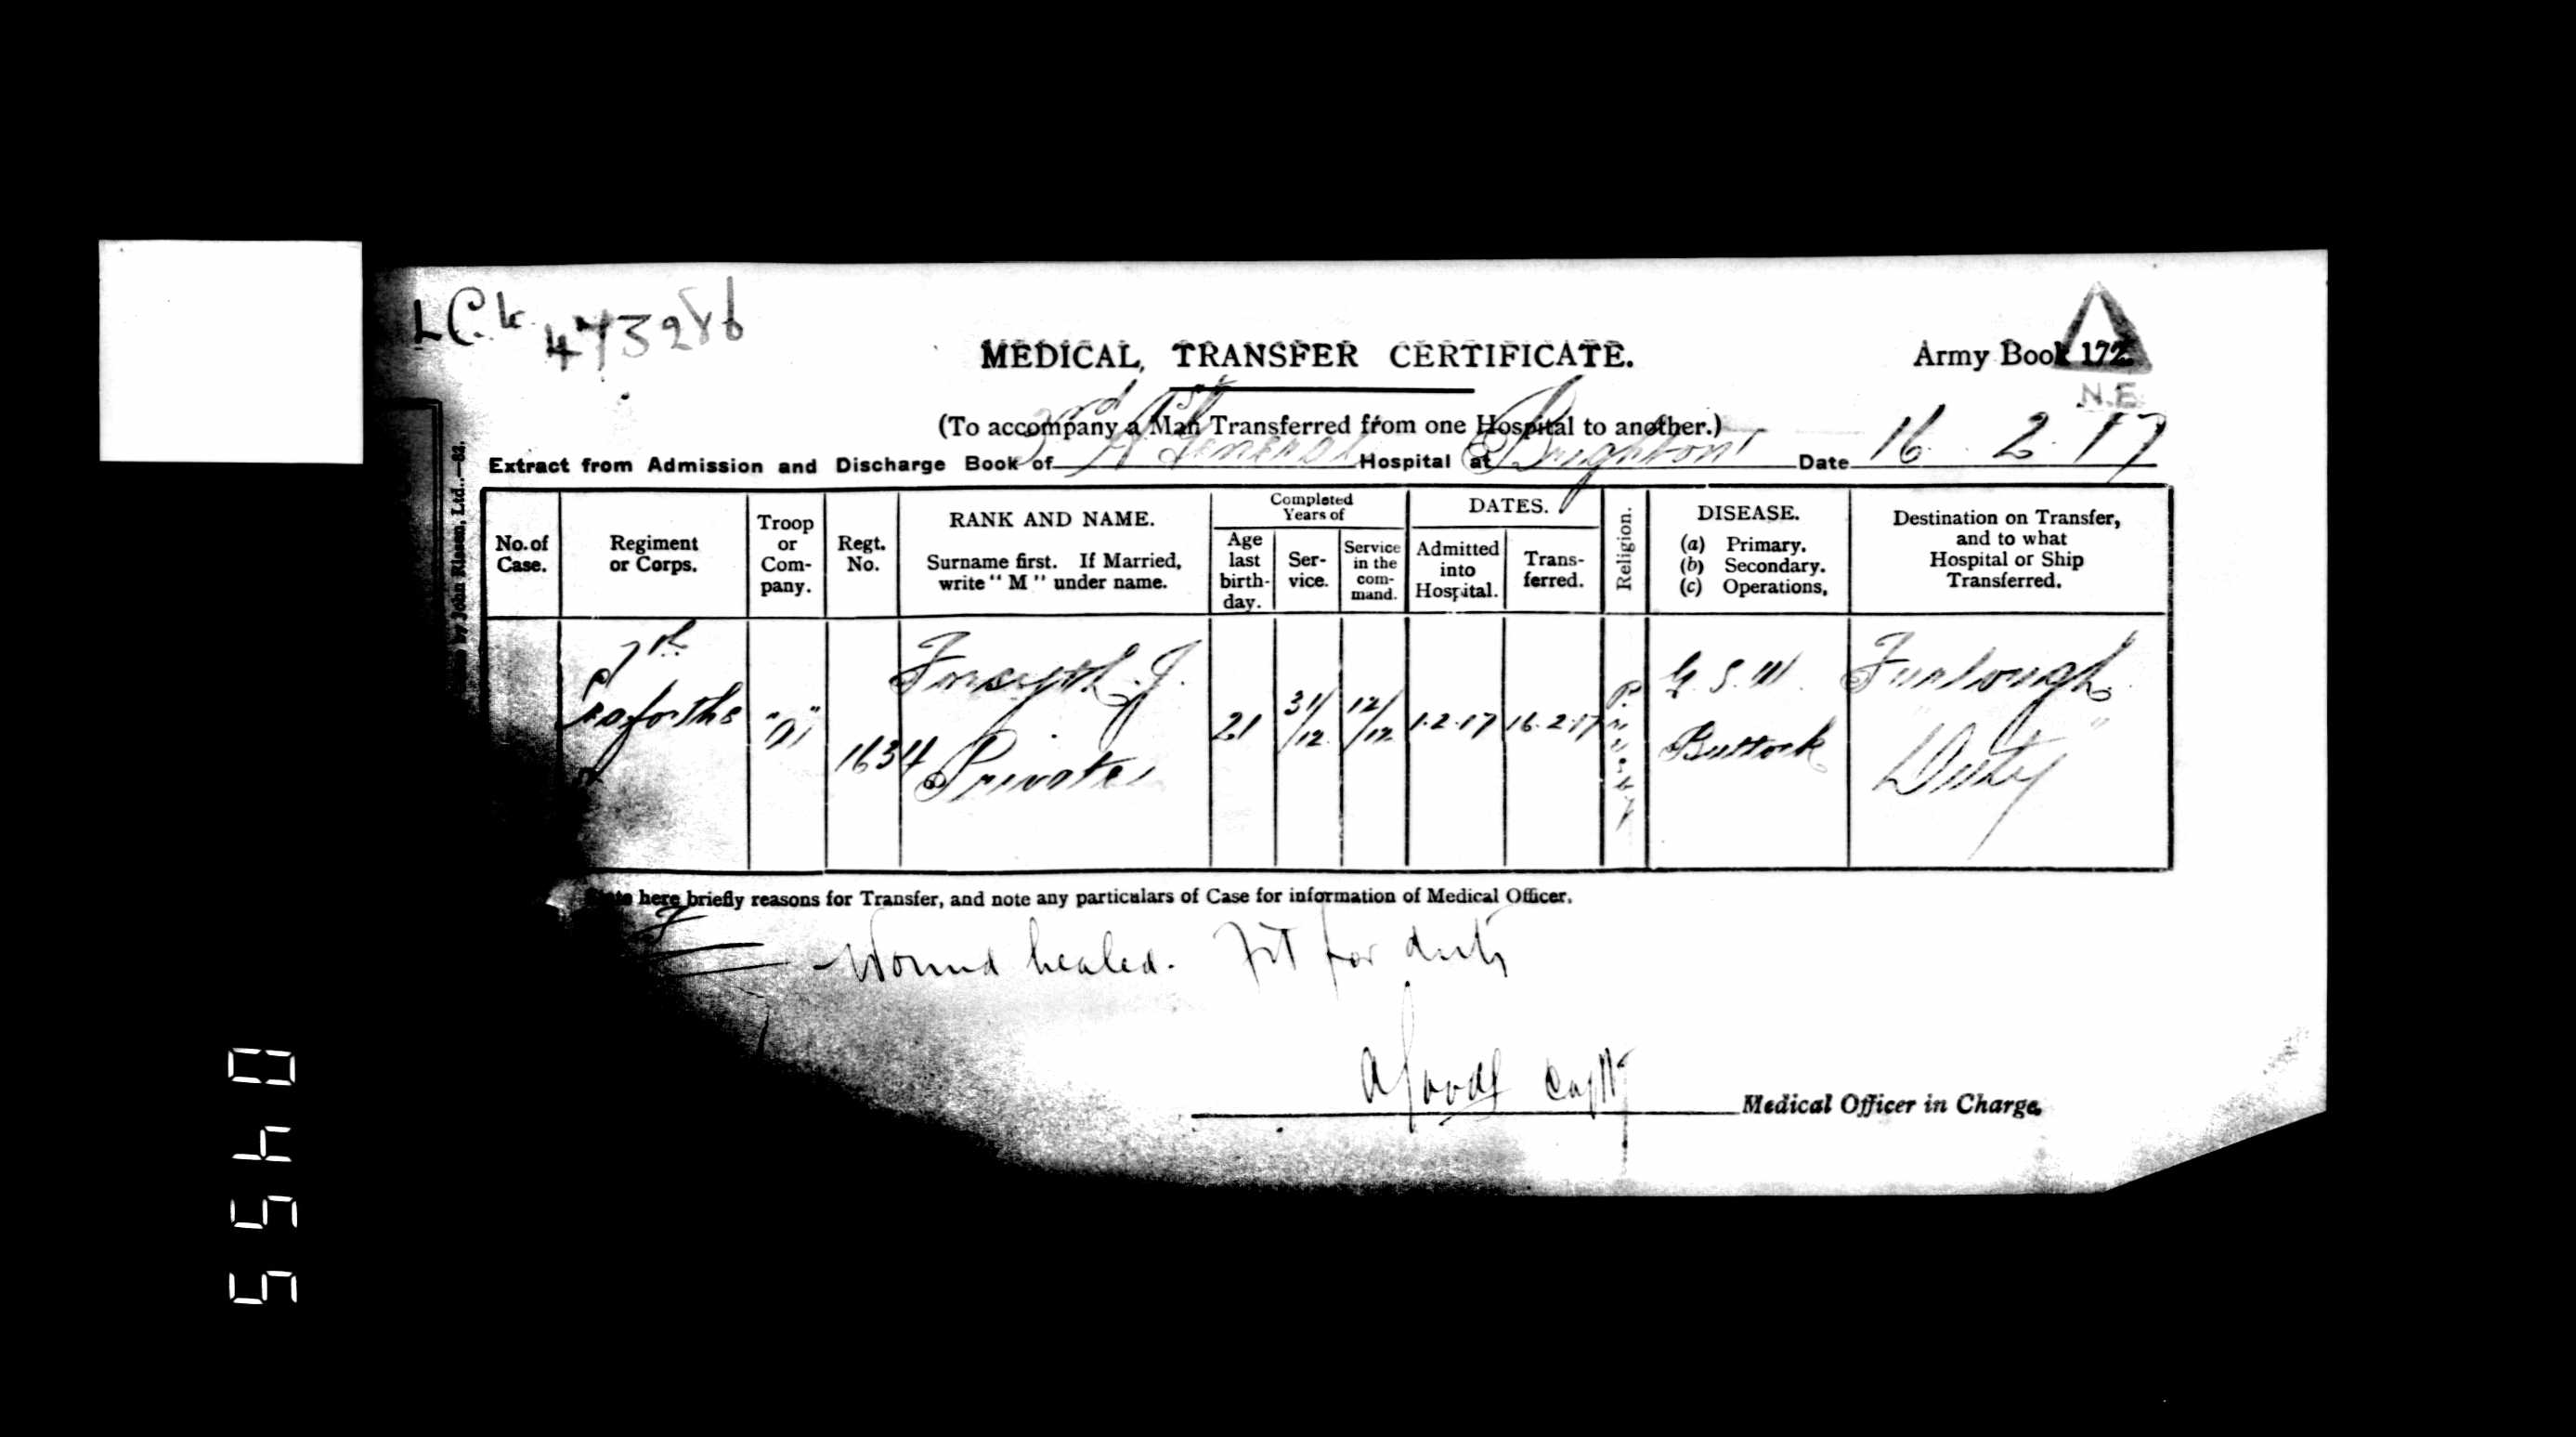 473286
MEDICAL, TRANSFER CERTIFICATE.
Army Book 172.
N.E.
(To accompany a Man Transferred from one Hospital to another.)
Extract from Admission and Discharge Book of General Hospital at Brighton Date 16 2 17
No. of Case.
Regiment or Corps.
Troop or Com-pany.
Regt. No.
RANK AND NAME.
Surname first. If Married, write "M" under name.
Completed Years of
Age last birth-day.
Ser-vice.
Service in the com-mand.
DATES.
Admitted into Hospital.
Trans-ferred.
Religion.
DISEASE.
(a) Primary.
(b) Secondary.
(c) Operations,
Destination on Transfer, and to what Hospital or Ship Transferred.
7th Seaforths
1634
Forsyth. J.
Private
21
31/12
12/12
1.2.17
16.2.17
Presby
G.S.W. Buttock
Furlough
"Duty"
here briefly reasons for Transfer, and note any particulars of Case for information of Medical Officer.
Wound healed. Fit for duty
Capt
Medical Officer in Charge.
by John Rissen, Ltd.
0455